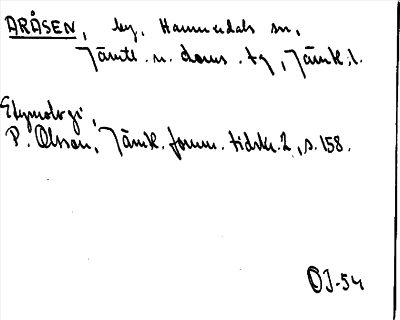 ARÅSEN, by, Hammerdals sn,
Jämtl. n. doms. tg, Jämtl. l.
Etymologi,
P. Olsson, Jämtl. fornm. tidskr. 2, s. 158.
OJ-54